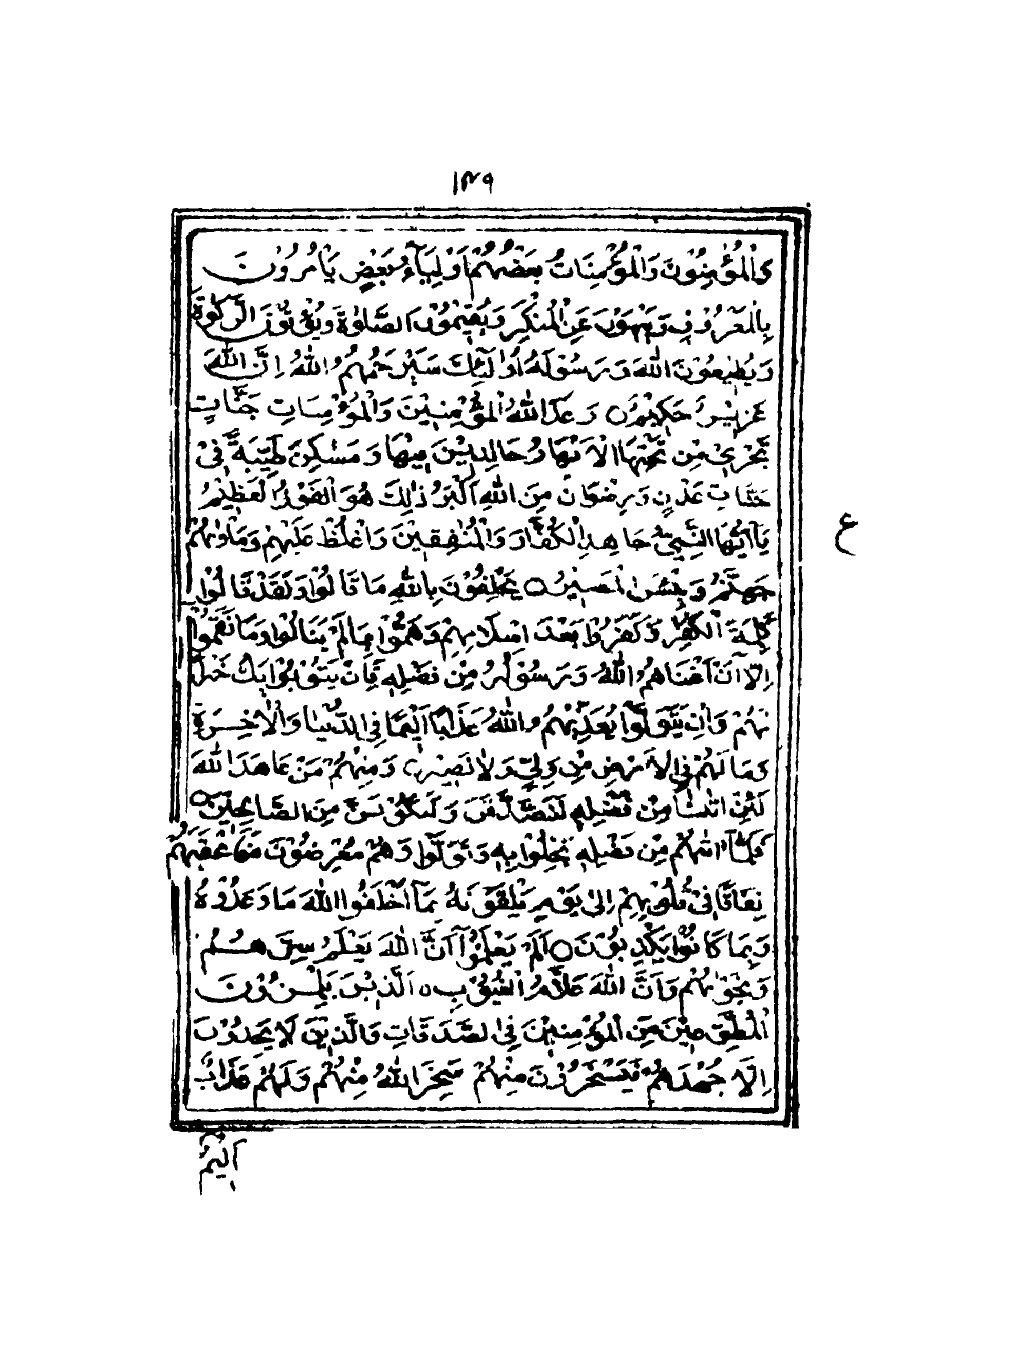 ١٣٩
وَالْمُؤْمِنُوْنَ وَالْمُؤْمِنَاتُ بَعْضُهُمْ اَوْلِيَآءُ بَعْضٍ يَاْمُرُوْنَ
بِالْمَعْرُوْفِ وَيَنْهَوْنَ عَنِ الْمُنْكَرِ وَيُقِيْمُوْنَ الصَّلٰوةَ وَيُؤْتُوْنَ الزَّكٰوةَ
وَيُطِيْعُوْنَ اللّٰهَ وَرَسُوْلَهُ اُولٰٓئِكَ سَيَرْحَمُهُمُ اللّٰهُ اِنَّ اللّٰهَ
عَزِيْزٌ حَكِيْمٌ ۝ وَعَدَ اللّٰهُ الْمُؤْمِنِيْنَ وَالْمُؤْمِنَاتِ جَنَّاتٍ
تَجْرِيْ مِنْ تَحْتِهَا الْاَنْهَارُ خَالِدِيْنَ فِيْهَا وَمَسٰكِنَ طَيِّبَةً فِيْ
جَنَّاتِ عَدْنٍ وَرِضْوَانٌ مِنَ اللّٰهِ اَكْبَرُ ذٰلِكَ هُوَ الْفَوْزُ الْعَظِيْمُ
يَآ اَيُّهَا النَّبِيُّ جَاهِدِ الْكُفَّارَ وَالْمُنٰفِقِيْنَ وَاغْلُظْ عَلَيْهِمْ وَمَاْوٰىهُمْ
جَهَنَّمُ وَبِئْسَ الْمَصِيْرُ ۝ يَحْلِفُوْنَ بِاللّٰهِ مَا قَالُوْا وَلَقَدْ قَالُوْا
كَلِمَةَ الْكُفْرِ وَكَفَرُوْا بَعْدَ اِسْلَامِهِمْ وَهَمُّوْا بِمَا لَمْ يَنَالُوْا وَمَا نَقَمُوْا
اِلَّآ اَنْ اَغْنَاهُمُ اللّٰهُ وَرَسُوْلُهُ مِنْ فَضْلِهٖ فَاِنْ يَتُوْبُوْا يَكُ خَيْرًا
لَهُمْ وَاِنْ يَتَوَلَّوْا يُعَذِّبْهُمُ اللّٰهُ عَذَابًا اَلِيْمًا فِي الدُّنْيَا وَالْاٰخِرَةِ
وَمَا لَهُمْ فِي الْاَرْضِ مِنْ وَلِيٍّ وَلَا نَصِيْرٍ ۝ وَمِنْهُمْ مَنْ عَاهَدَ اللّٰهَ
لَئِنْ اٰتٰىنَا مِنْ فَضْلِهٖ لَنَصَّدَّقَنَّ وَلَنَكُوْنَنَّ مِنَ الصَّالِحِيْنَ ۝
فَلَمَّآ اٰتٰىهُمْ مِنْ فَضْلِهٖ بَخِلُوْا بِهٖ وَتَوَلَّوْا وَهُمْ مُعْرِضُوْنَ فَاَعْقَبَهُمْ
نِفَاقًا فِيْ قُلُوْبِهِمْ اِلٰى يَوْمِ يَلْقَوْنَهُ بِمَآ اَخْلَفُوا اللّٰهَ مَا وَعَدُوْهُ
وَبِمَا كَانُوْا يَكْذِبُوْنَ ۝ اَلَمْ يَعْلَمُوْٓا اَنَّ اللّٰهَ يَعْلَمُ سِرَّهُمْ
وَنَجْوٰىهُمْ وَاَنَّ اللّٰهَ عَلَّامُ الْغُيُوْبِ ۝ اَلَّذِيْنَ يَلْمِزُوْنَ
الْمُطَّوِّعِيْنَ مِنَ الْمُؤْمِنِيْنَ فِي الصَّدَقَاتِ وَالَّذِيْنَ لَا يَجِدُوْنَ
اِلَّا جُهْدَهُمْ فَيَسْخَرُوْنَ مِنْهُمْ سَخِرَ اللّٰهُ مِنْهُمْ وَلَهُمْ عَذَابٌ
ع
اَلِيْمٌ